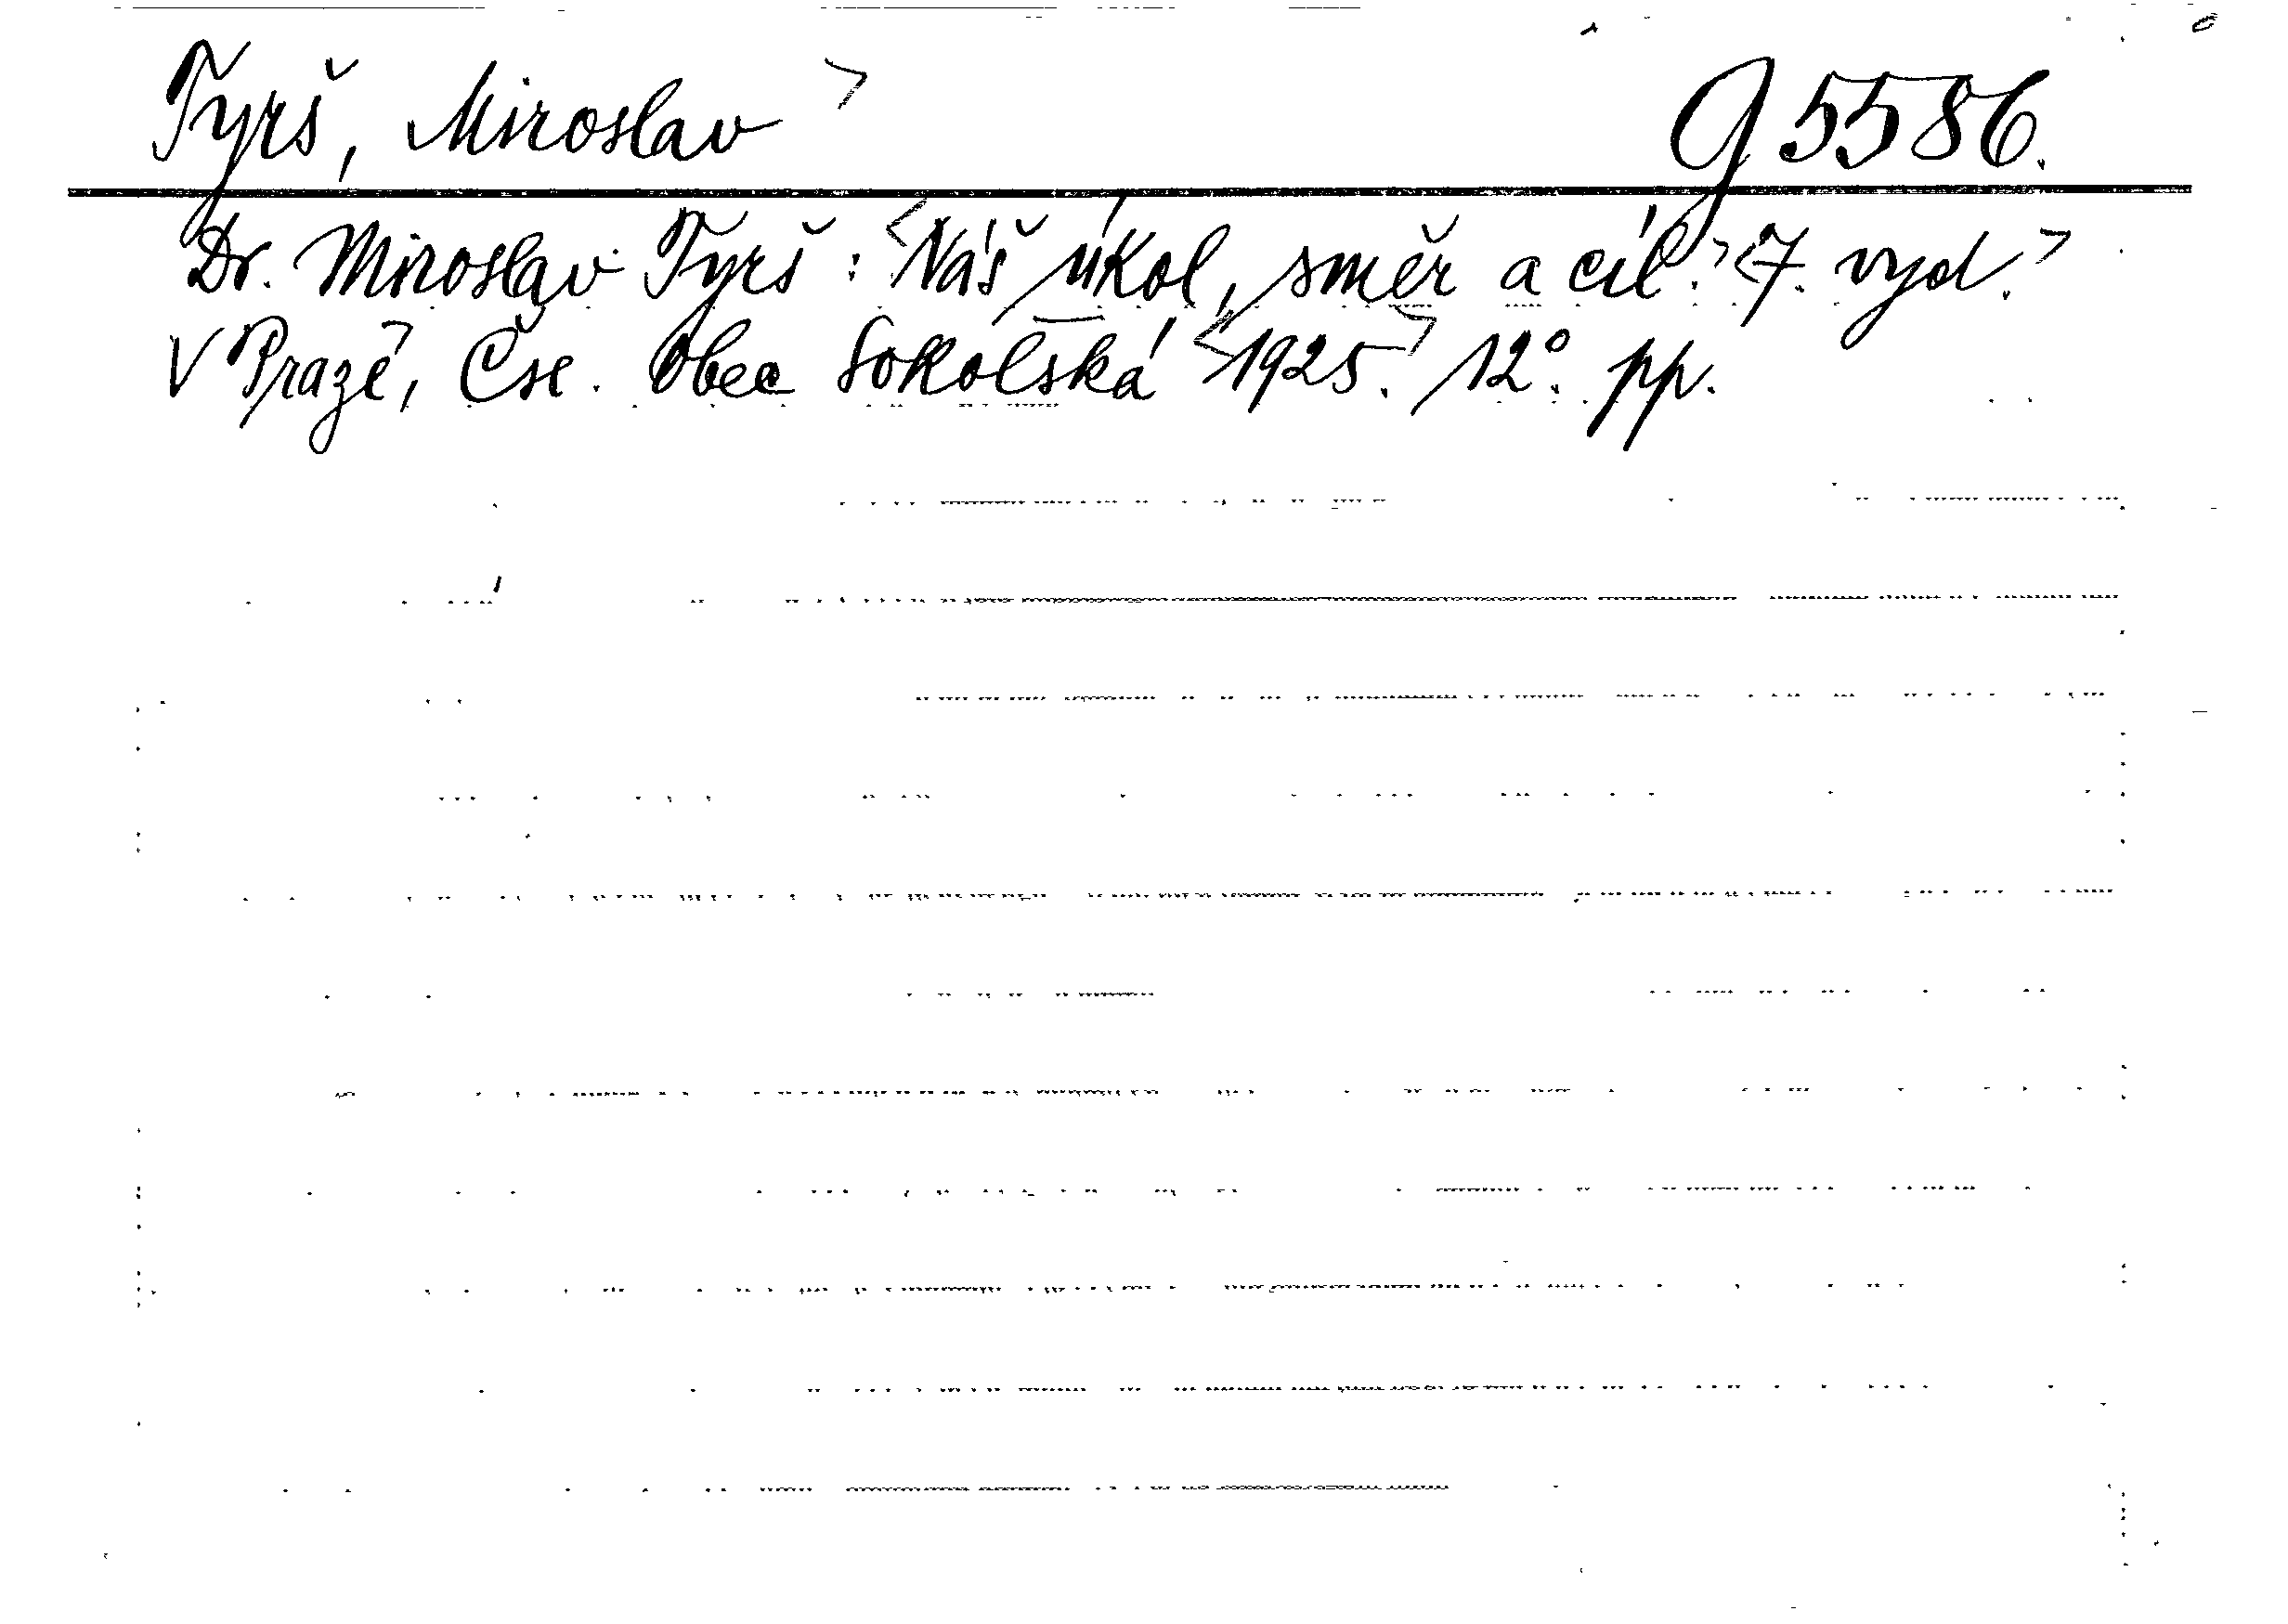 Tyrš, Miroslav > g 5586.
Dr. Miroslav Tyrš : <Náš úkol, směr a cíl.> <7. vyd.>
V Praze, Čsc. Obec Sokolská <1925.> 12°. pp.